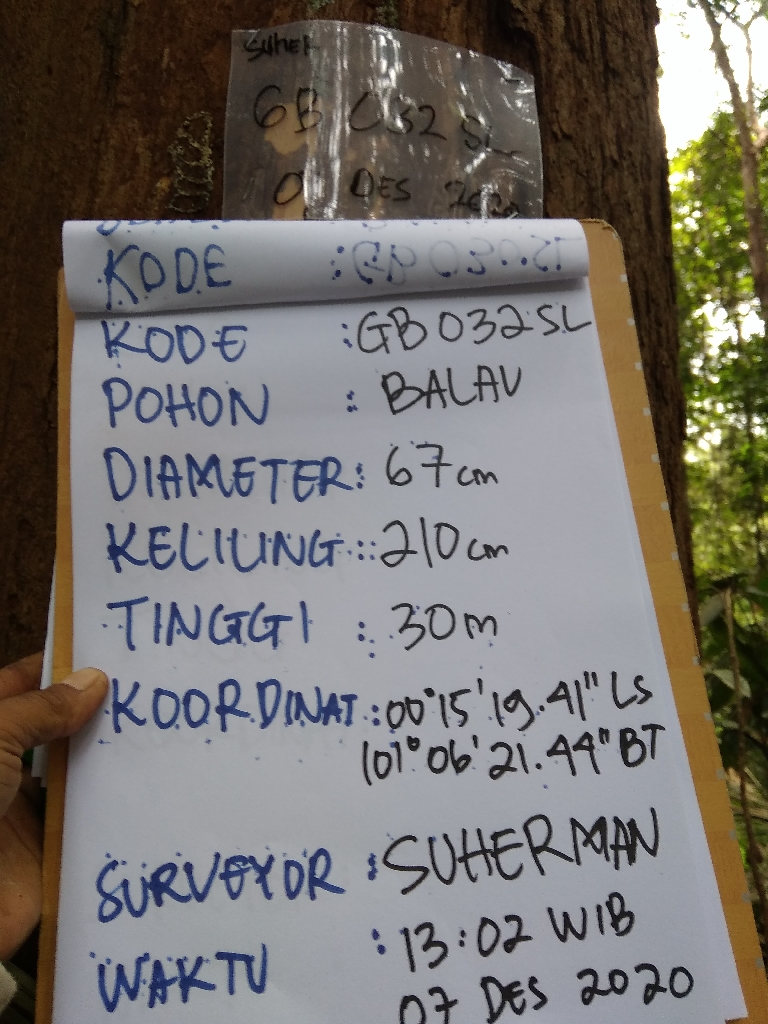 SUHER
GB 032 SL
07 DES 2020
KODE :
KODE : GB 032 SL
POHON : BALAU
DIAMETER : 67 cm
KELILING : 210 cm
TINGGI : 30 m
KOORDINAT : 00°15'19.41" LS
101°06'21.44" BT
SURVEYOR : SUHERMAN
WAKTU : 13:02 WIB
07 DES 2020